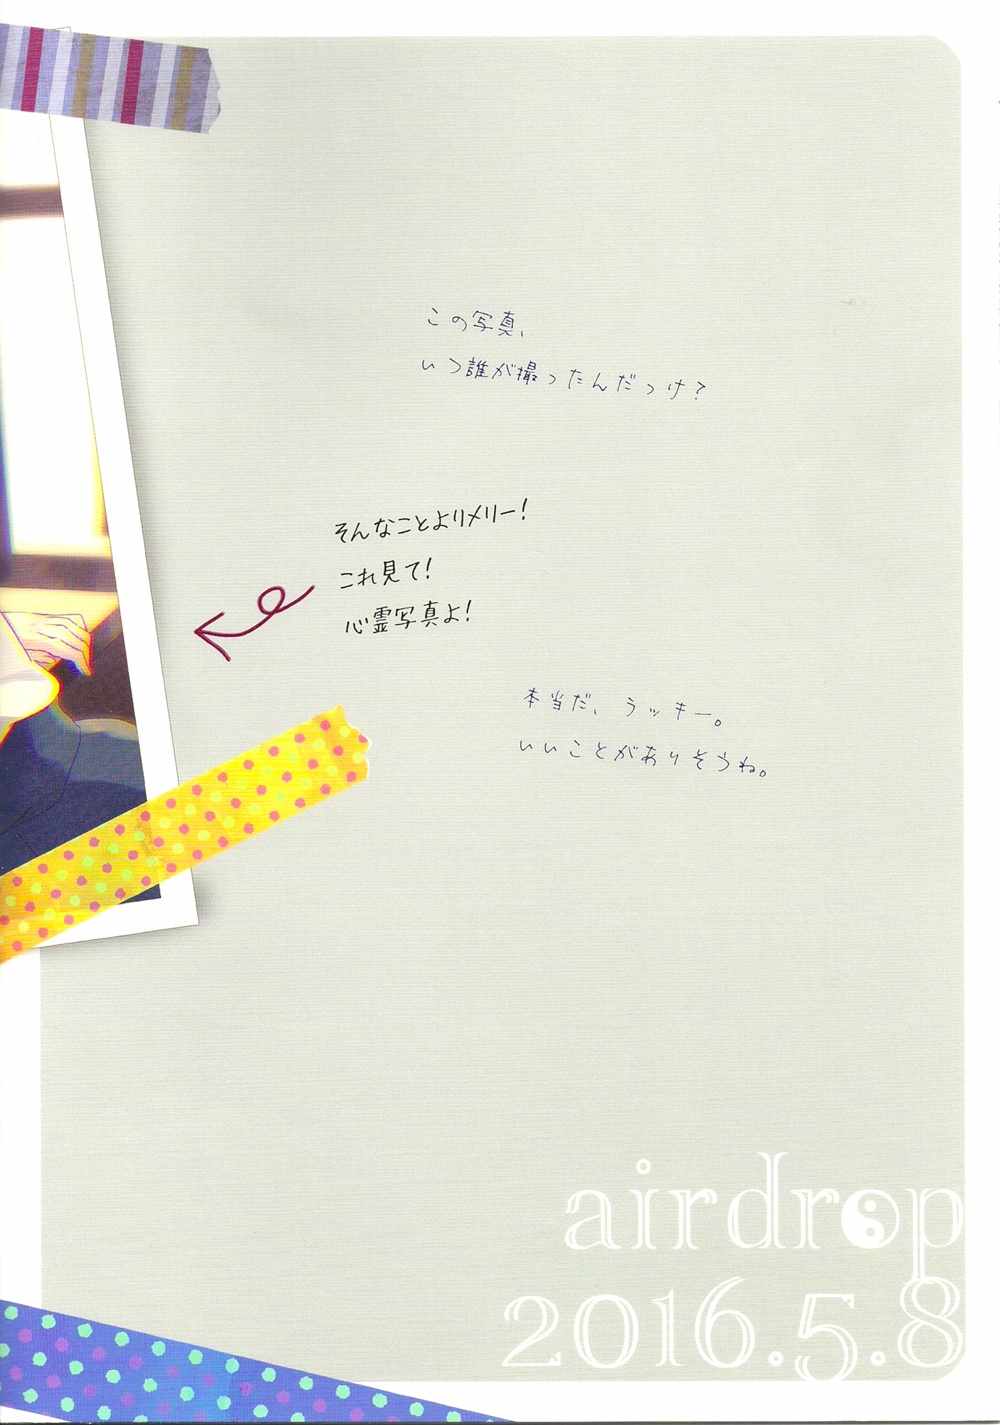 この写真、
いつ誰が撮ったんだっけ?
そんなことよりメリー!
これ見て!
心霊写真よ!
本当だ、ラッキー。
いいことがありそうね。
airdrop
2016.5.8